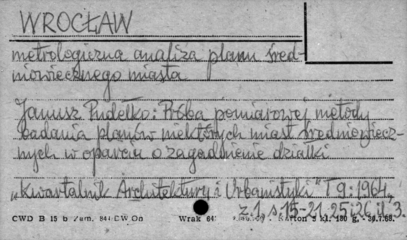 WROCŁAW
metrologiczna analiza planu śred-
niowiecznego miasta
Janusz Pudełko: Próba pomiarowej metody
badania planów niektórych miast średniowiecz-
nych w oparciu o zagadnienie działki
„Kwartalnik Architektury i Urbanistyki" T 9: 1964,
z. 1, s. 15-21.25; 26 il. 3.
CWD B 15 b Zam. 841 CW On Wrak 64